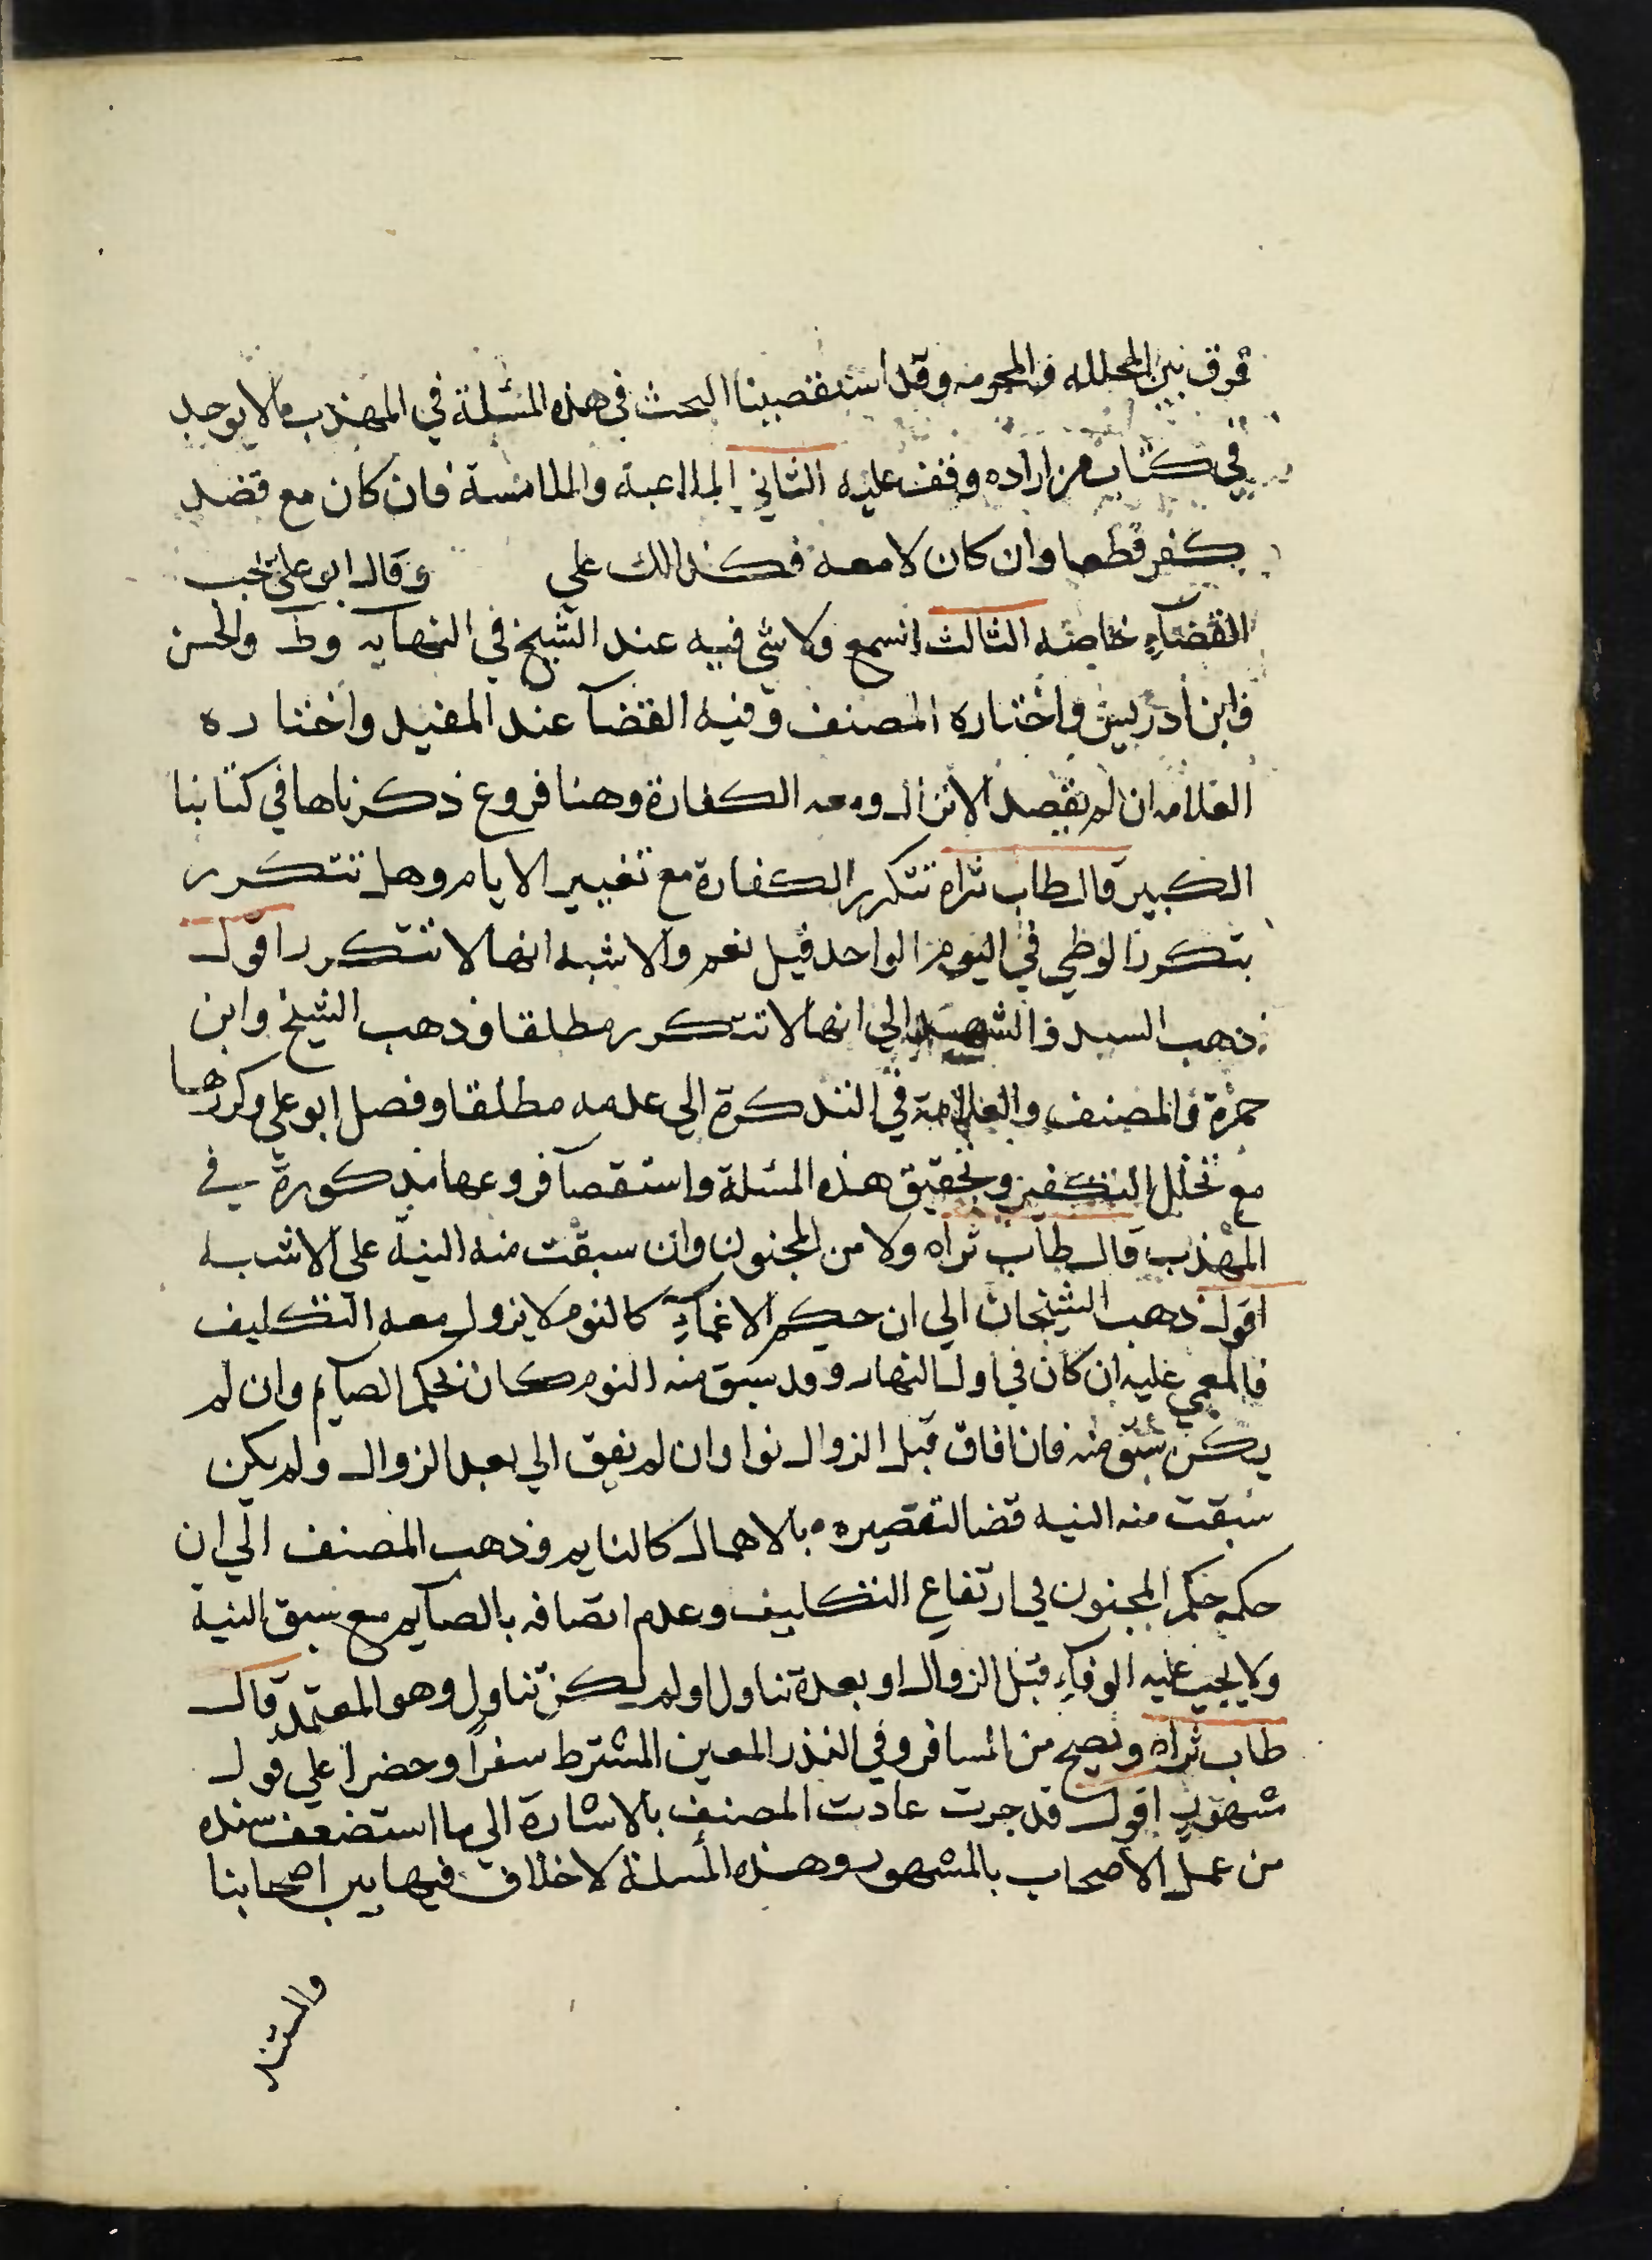 فرق بين المحلله والمحرمه وقد استقصينا البحث في هذه المسئلة في المهذب ما لا يوجد
في كتاب من اراده وقف عليه الثاني الملاعبة والملامسة فان كان مع قصد
كفر قطعا وان كان لا معه فكذلك علي وقال ابو علي يجب
القضاء خاصه الثالث انسمع ولا شي فيه عند الشيخ في النهايه وط والحسن
وابن ادريس واختاره المصنف وفيه القضآ عند المفيد واختاره
العلامه ان لم يقصد الانزال ومعه الكفارة وهنا فروع ذكرناها في كتابنا
الكبير قال طاب ثراه تتكرر الكفارة مع تغيير الايام وهل تتكرر
بتكرر الوطي في اليوم الواحد قيل نعم والاشبه انها لا تتكرر اقول
ذهب السيد والشهيد الي انها لا تتكرر مطلقا وذهب الشيخ وابن
حمزة والمصنف والعلامة في التذكرة الي عدمه مطلقا وفصل ابو علي وكررها
مع تخلل التكفير وتحقيق هذه المسئلة واستقصآ فروعها مذكورة في
المهذب قال طاب ثراه ولا من المجنون وان سبقت منه النية علي الاشبه
اقول ذهب الشيخان الي ان حكم الاغمآء كالنوم لا يزول معه التكليف
فالمغمي عليه ان كان في اول النهار وقد سبق منه النوم كان بحكم الصايم وان لم
يكن سبق منه فان افاق قبل الزوال نوا وان لم يفق الي بعد الزوال ولم يكن
سبقت منه النيه قضا لتقصيره بالاهمال كالنايم وذهب المصنف الي ان
حكمه حكم المجنون في ارتفاع التكليف وعدم اتصافه بالصايم مع سبق النية
ولا يجب عليه الوفاء قبل الزوال او بعده تناول او لم يكن تناول وهو المعتمد قال
طاب ثراه ويصح من المسافر وفي النذر المعين المشترط سفراً وحضرا علي قول
مشهور اقول قد جرت عادت المصنف بالاشارة الي ما استضعف سنده
من عمل الاصحاب بالمشهور وهذه المسلة لا خلاف فيها بين اصحابنا
والمستند